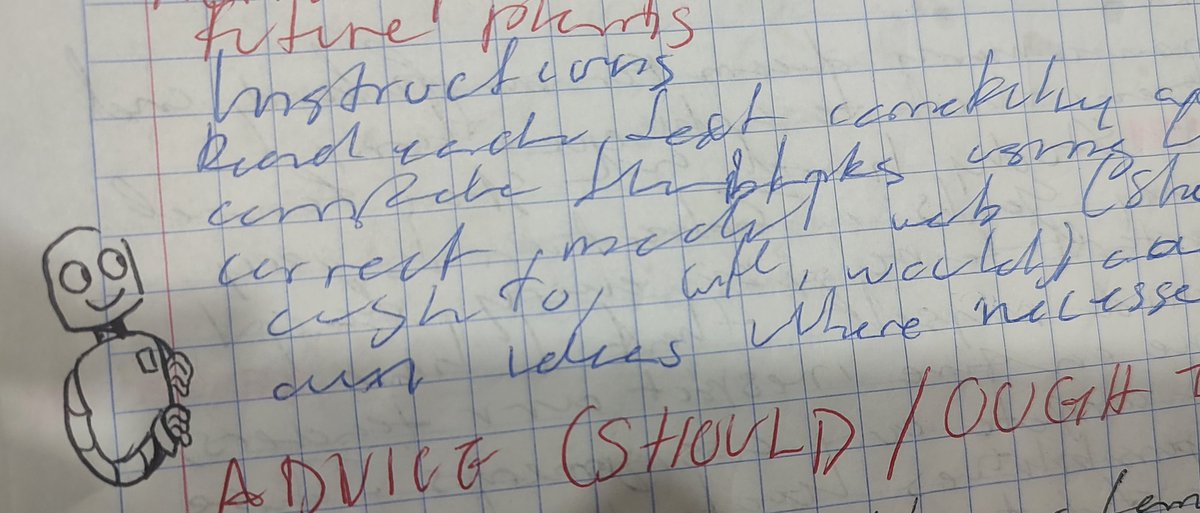 future plants
Instructions
Read each text carefully
complete the blanks using
correct modal verb (sho
wish to, will, would) ad
own ideas where necesse
ADVICE (SHOULD / OUGHT T